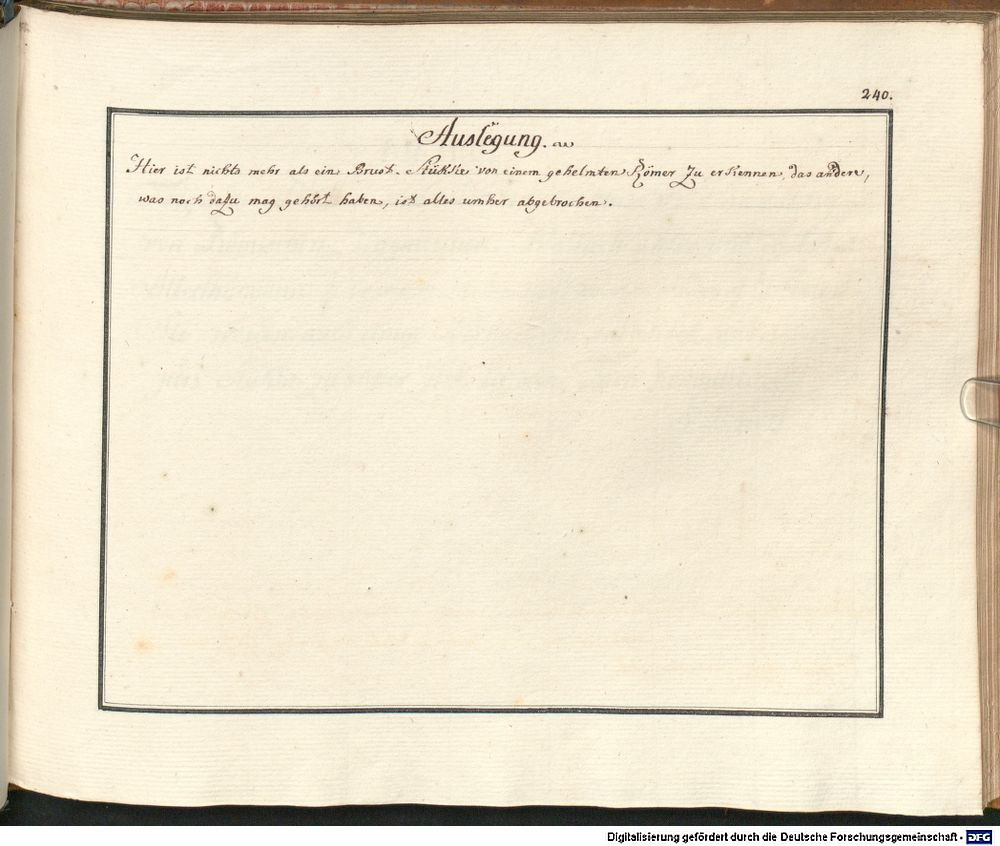 240.
Auslegung.
Hier ist nichts mehr als ein Brust-Stükke von einem gehelmten Römer zu erkennen, das andere,
was noch dazu mag gehört haben, ist alles umher abgebrochen.
Digitalisierung gefördert durch die Deutsche Forschungsgemeinschaft - DFG